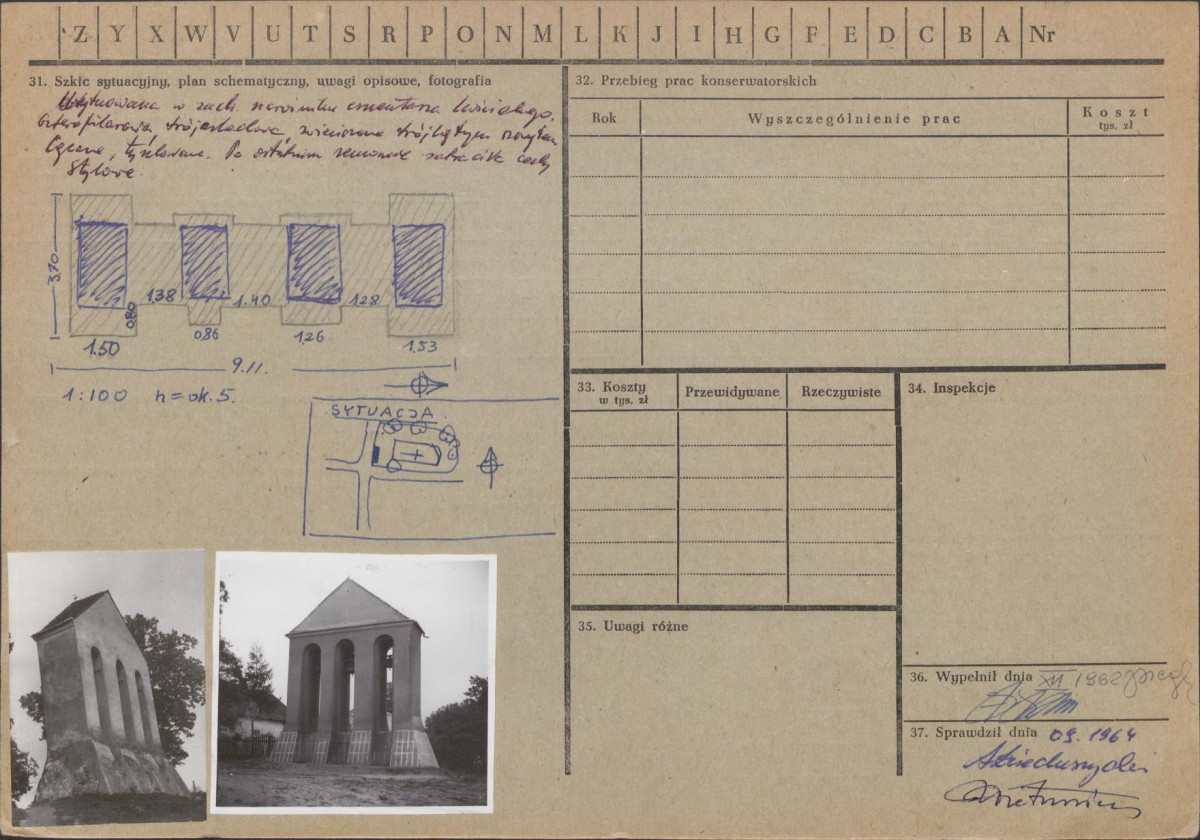 Z Y X W V U T S R P O N M L K J I H G F E D C B A Nr
31. Szkic sytuacyjny, plan schematyczny, uwagi opisowe, fotografia
w zach. cmentarza
trójarkadowa, zwieńczona trójkątnym
tynkowana. Po ostatnim remoncie cechy
stylowe.
3,70
0,80
1.38
1.40
1.28
0.86
1.26
1.50
1.53
9.11.
1:100 h = ok. 5.
SYTUACJA
32. Przebieg prac konserwatorskich
Rok
Wyszczególnienie prac
Koszt
tys. zł
33. Koszty
w tys. zł
Przewidywane
Rzeczywiste
34. Inspekcje
35. Uwagi różne
36. Wypełnił dnia XII 1962
37. Sprawdził dnia 09. 1964